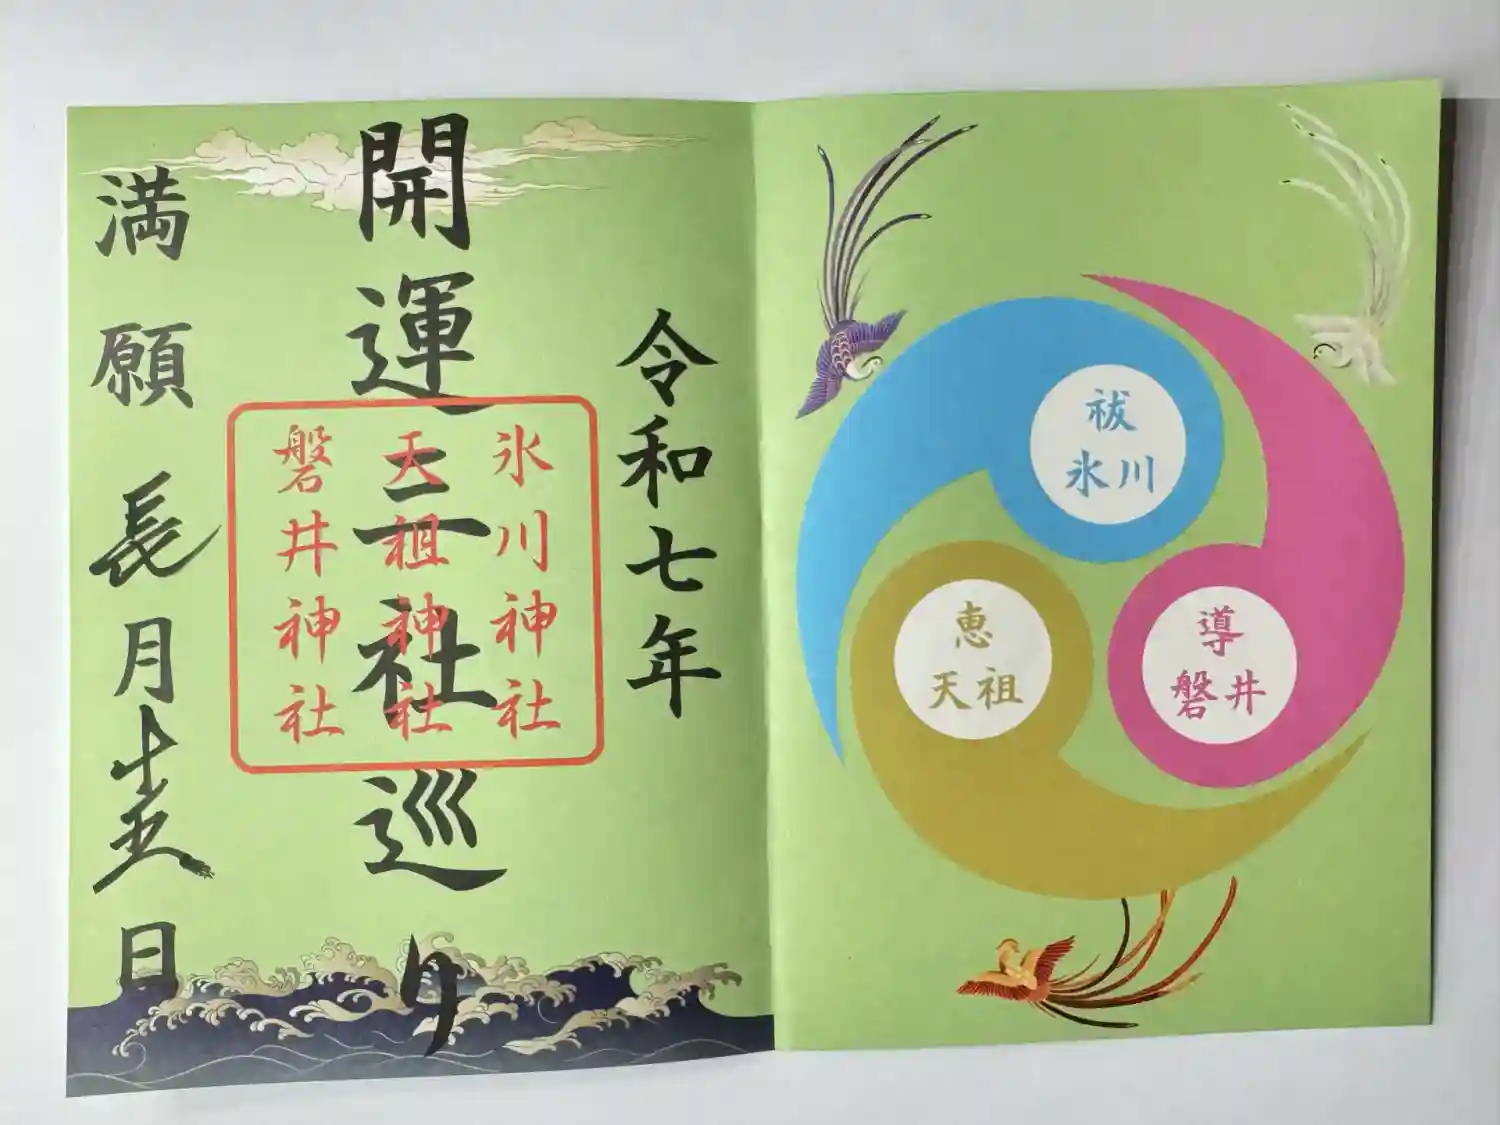 令和七年
開運三社巡り
氷川神社
天祖神社
磐井神社
満願
長月十五日
祓
氷川
恵
天祖
導
磐井